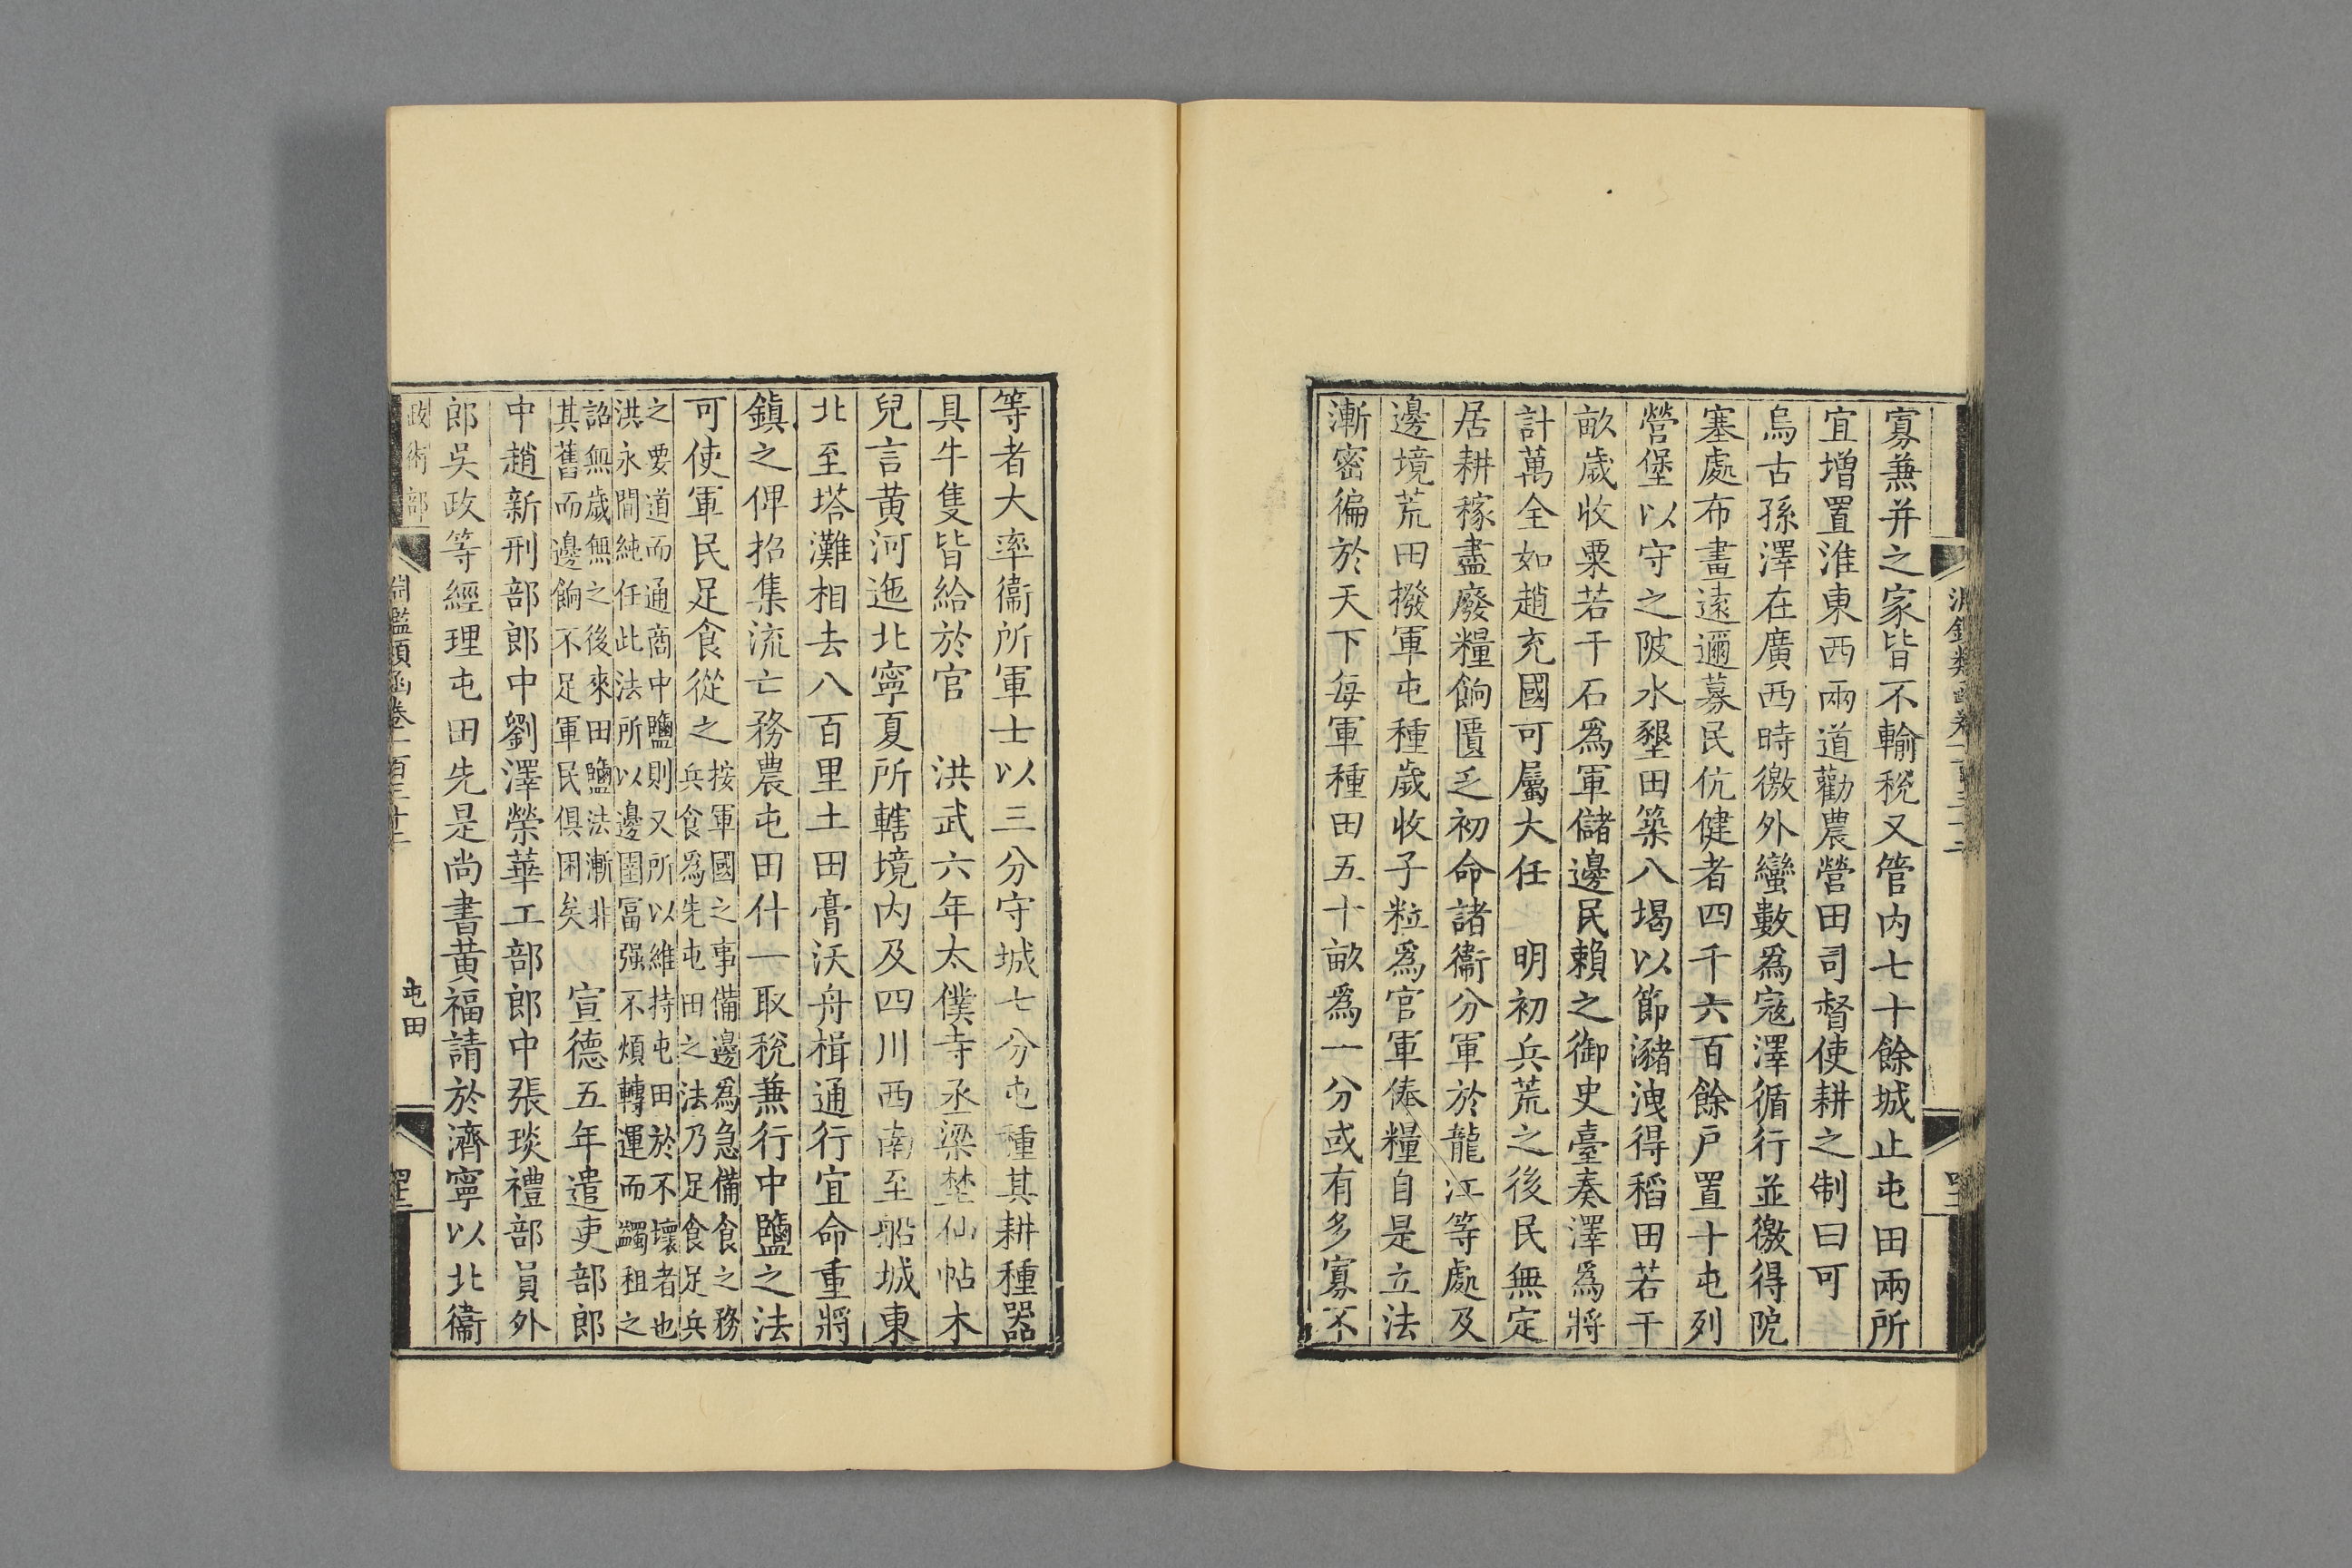 寡兼并之家皆不輸稅又管内七十餘城止屯田兩所
宜增置淮東西兩道勸農營田司督使耕之制曰可
烏古孫澤在廣西時徼外蠻數爲寇澤循行並徼得院
塞處布畫遠邇募民伉健者四千六百餘戶置十屯列
營堡以守之陂水墾田築八堨以節瀦洩得稻田若干
畝歲收粟若干石爲軍儲邊民賴之御史臺奏澤爲將
計萬全如趙充國可屬大任　明初兵荒之後民無定
居耕稼盡廢糧餉匱乏初命諸衞分軍於龍江等處及
邊境荒田撥軍屯種歲收子粒爲官軍俸糧自是立法
漸密徧於天下每軍種田五十畝爲一分或有多寡不
等者大率衞所軍士以三分守城七分屯種其耕種器
具牛隻皆給於官　洪武六年太僕寺丞梁埜仙帖木
兒言黃河迤北寧夏所轄境内及四川西南至船城東
北至塔灘相去八百里土田膏沃舟楫通行宜命重將
鎮之俾招集流亡務農屯田什一取稅兼行中鹽之法
可使軍民足食從之
按軍國之事備邊爲急備食之務
兵食爲先屯田之法乃足食足兵
之要道而通商中鹽則又所以維持屯田於不壞者也
洪永間純任此法所以邊圉富强不煩轉運而蠲租之
詔無歲無之後來田鹽法漸非
其舊而邊餉不足軍民俱困矣
宣德五年遣吏部郎
中趙新刑部郎中劉澤榮華工部郎中張琰禮部員外
郎吳政等經理屯田先是尚書黃福請於濟寧以北衞
政術部
淵鑑類函卷一百三十五
屯田